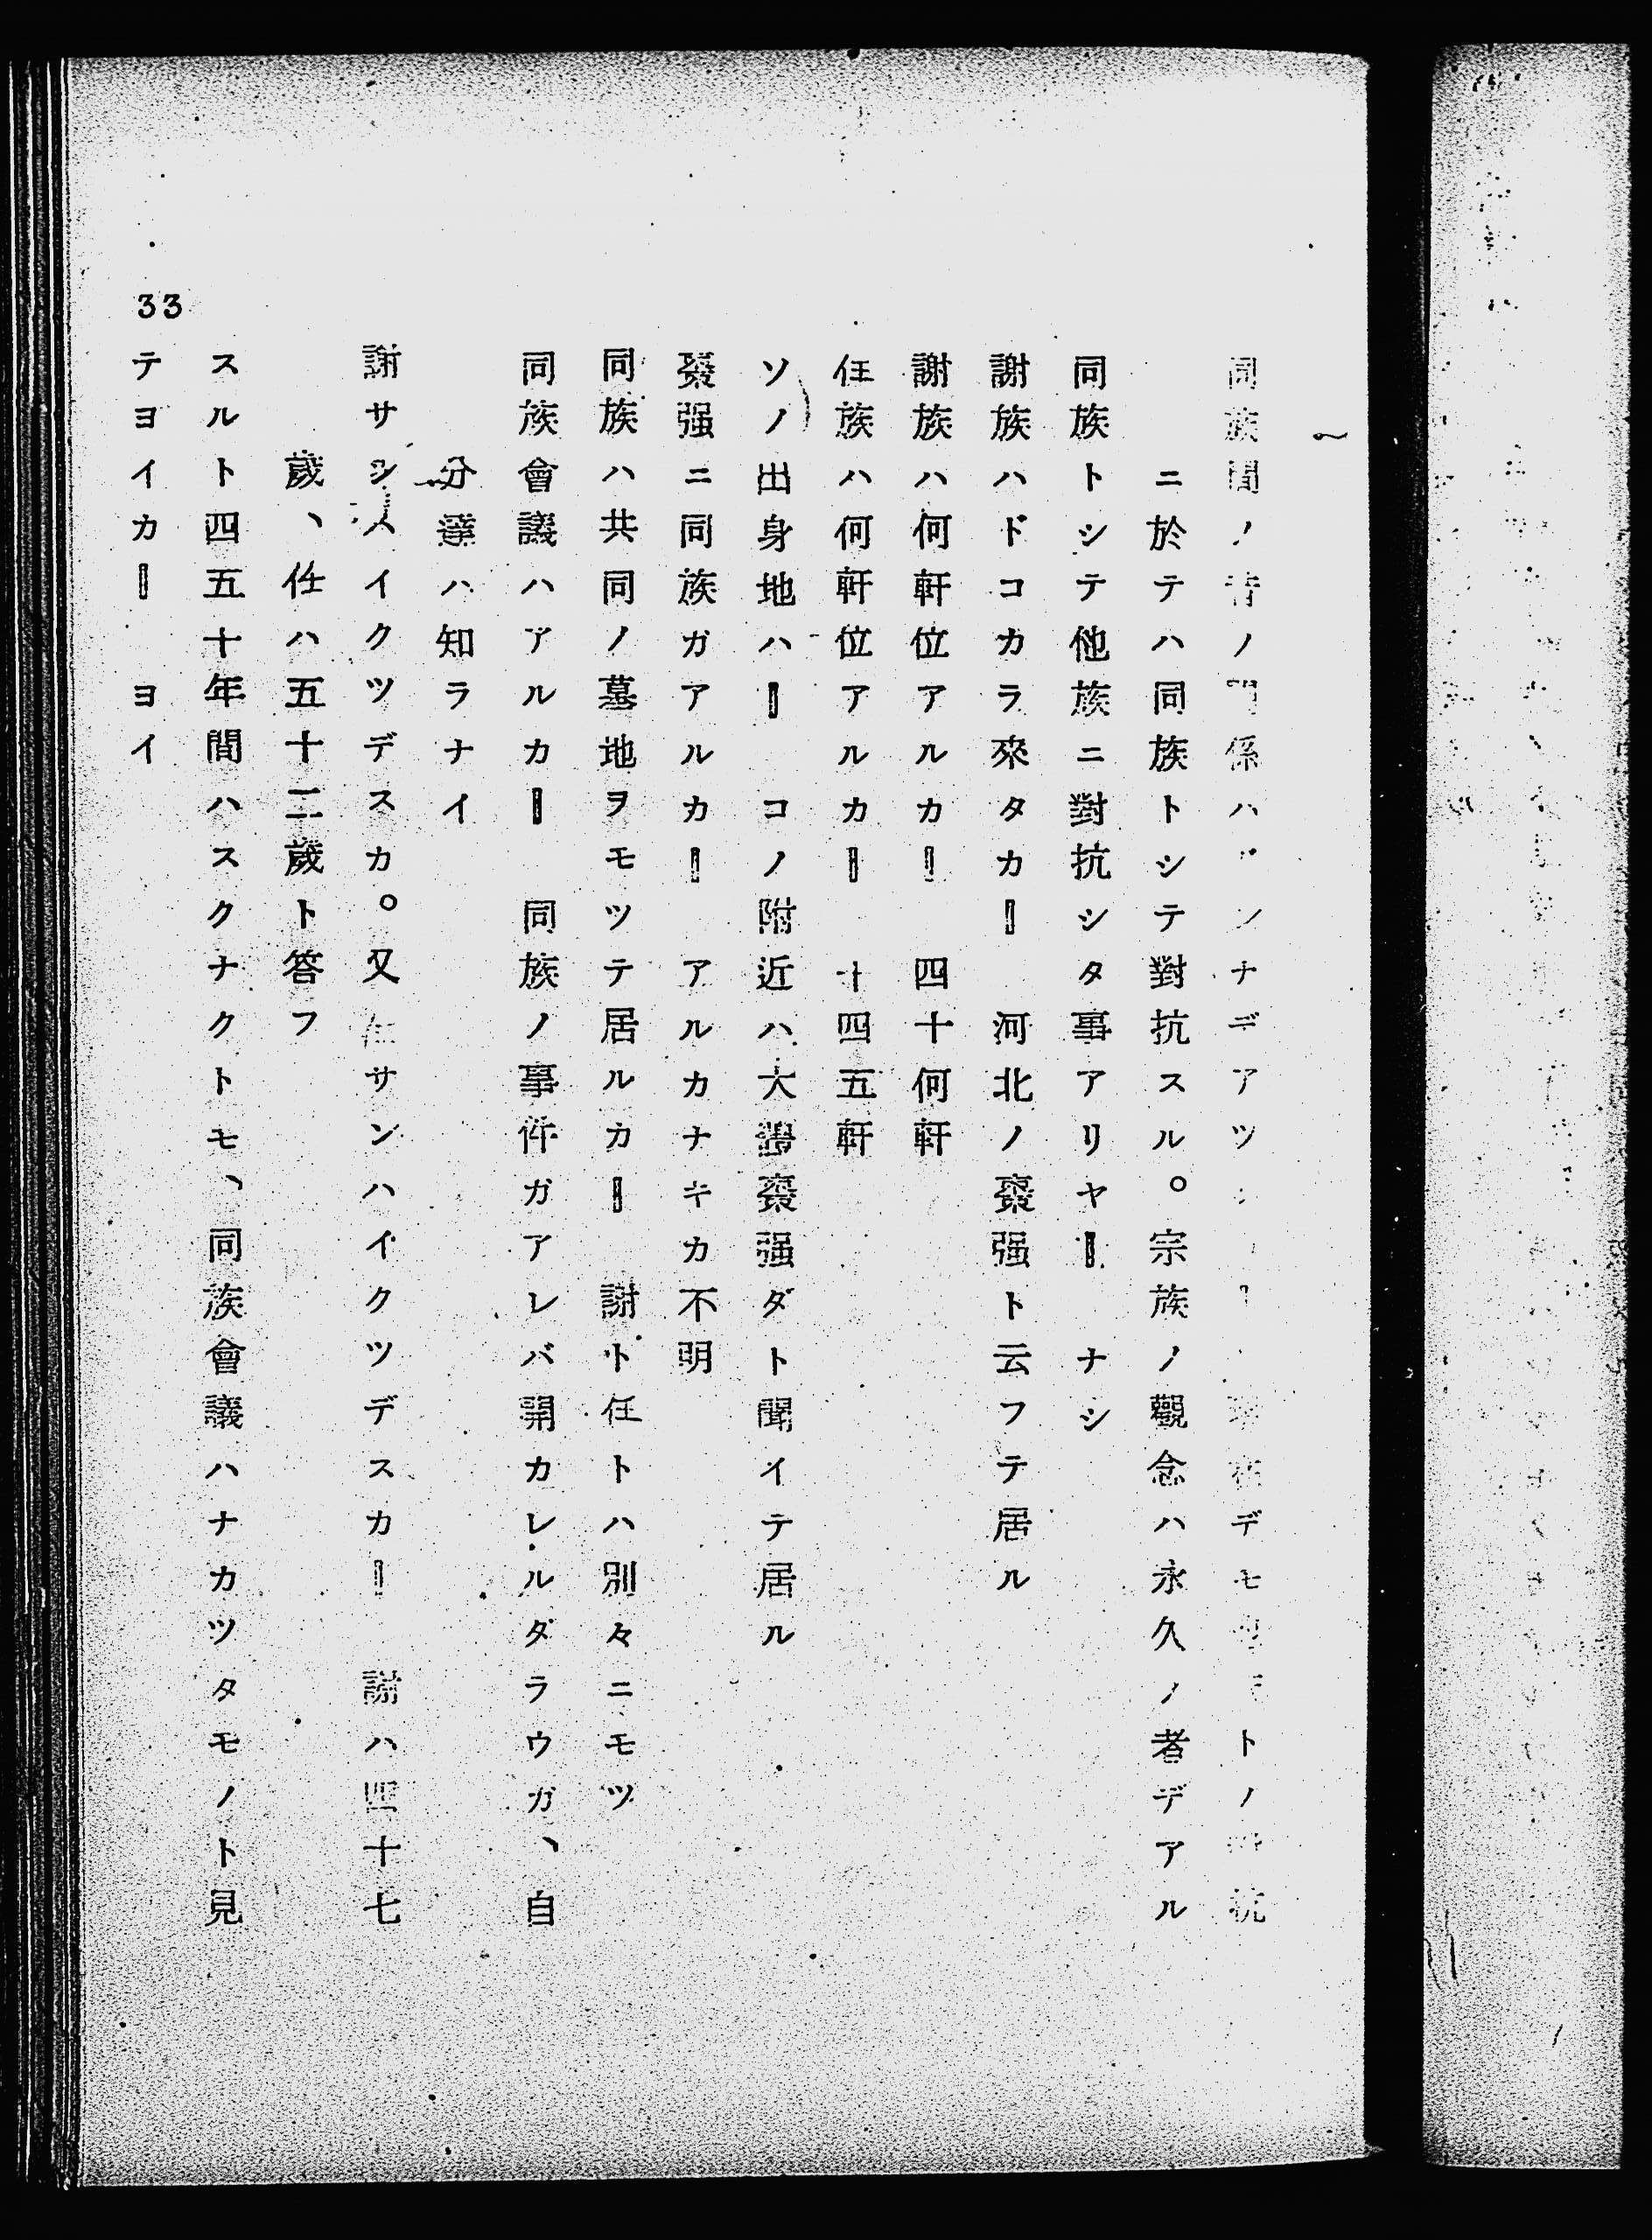 同族間ノ昔ノ關係ハドンナデアツ デモ トノ 抗
ニ於テハ同族トシテ對抗スル。宗族ノ觀念ハ永久ノ者デアル
同族トシテ他族ニ對抗シタ事アリヤー ナシ
謝族ハドコカラ來タカー 河北ノ棗强ト云フテ居ル
謝族ハ何軒位アルカー 四十何軒
任族ハ何軒位アルカー 十四五軒
ソノ出身地ハー コノ附近ハ大 棗强ダト聞イテ居ル
棗强ニ同族ガアルカー アルカナキカ不明
同族ハ共同ノ墓地ヲモツテ居ルカー 謝ト任トハ別々ニモツ
同族會議ハアルカー 同族ノ事件ガアレバ開カレルダラウガ、自
分達ハ知ラナイ
謝サンハイクツデスカ。又任サンハイクツデスカー 謝ハ四十七
歲、任ハ五十二歲ト答フ
スルト四五十年間ハスクナクトモ、同族會議ハナカツタモノト見
テヨイカー ヨイ
33